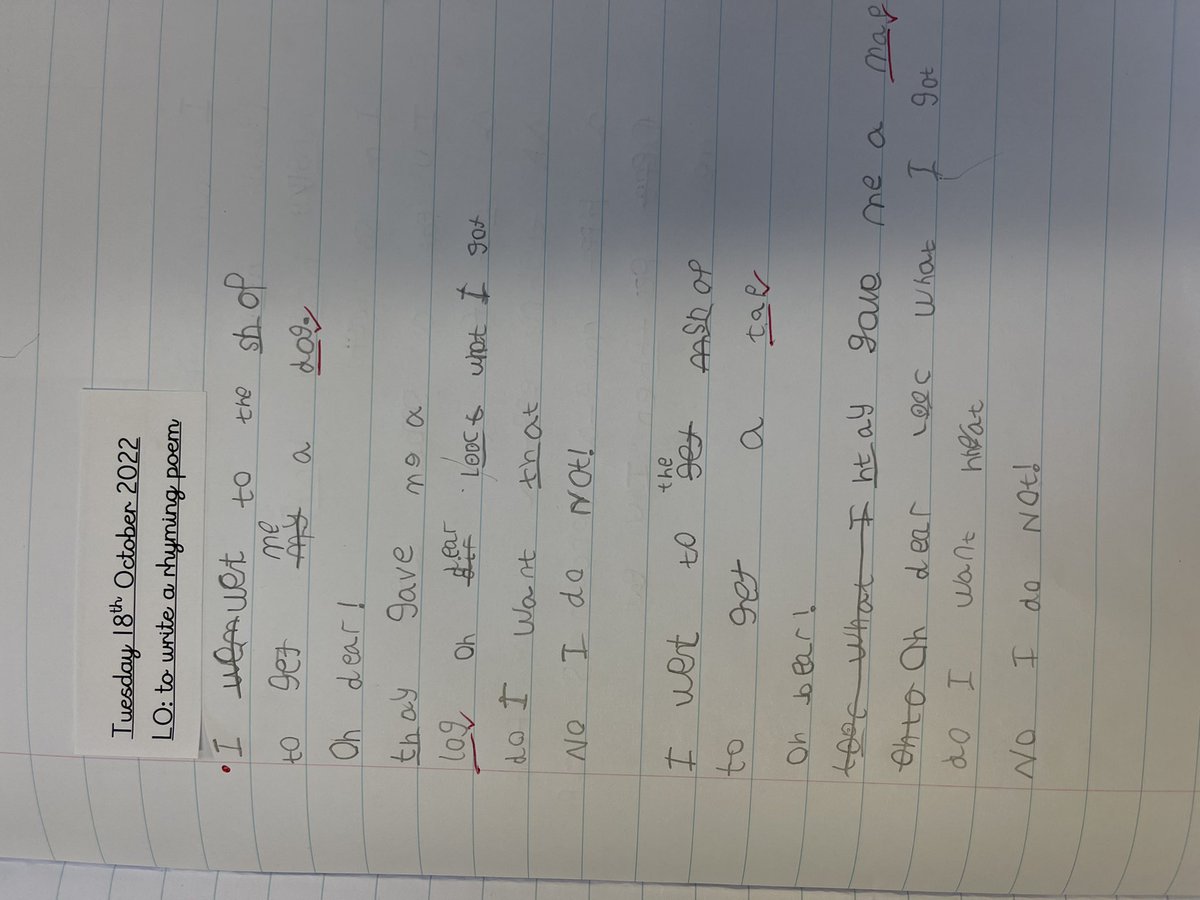 Tuesday 18th October 2022
LO: to write a rhyming poem
I wem wet to the shop
to get my me a dog.
Oh dear!
thay gave me a
log Oh dear looc what I got
do I want that
No I do NOt!
I wet to get the shop
to get a tap
oh bear!
looc what I htay gave me a map
Oh to Oh dear looc what I got
do I want that
No I do NOt!